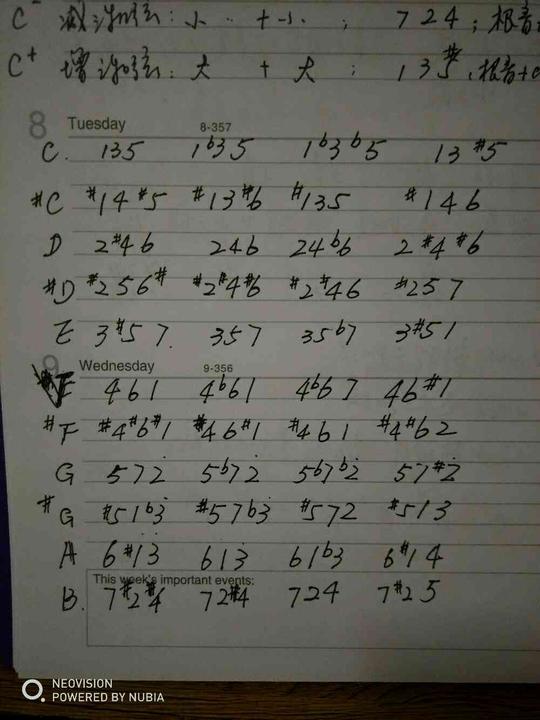 C⁻ 减三和弦: 小 + 小 ; 7 2 4 ; 根音
C⁺ 增三和弦: 大 + 大 ; 1 3 5# , 根音+
8 Tuesday 8-357
C. 135 1b35 1b3b5 13#5
#C #14#5 #13#6 #135 #146
D 2#46 246 24b6 2#4#6
#D #256# #2#4#6 #2#46 #257
E 3#57. 357 35b7 3#51
9 Wednesday 9-356
F 461 4b61 4b67 46#1
#F #4#6#1 #46#1 #461 #4#62
G 572̇ 5b72̇ 5b7b2̇ 57#2̇
#G #51b3̇ #57b3̇ #572 #513
A 6#1̇3̇ 613̇ 61b3 6#14
This week's important events:
B. 7#2#4 72#4 724 7#25
NEOVISION
POWERED BY NUBIA